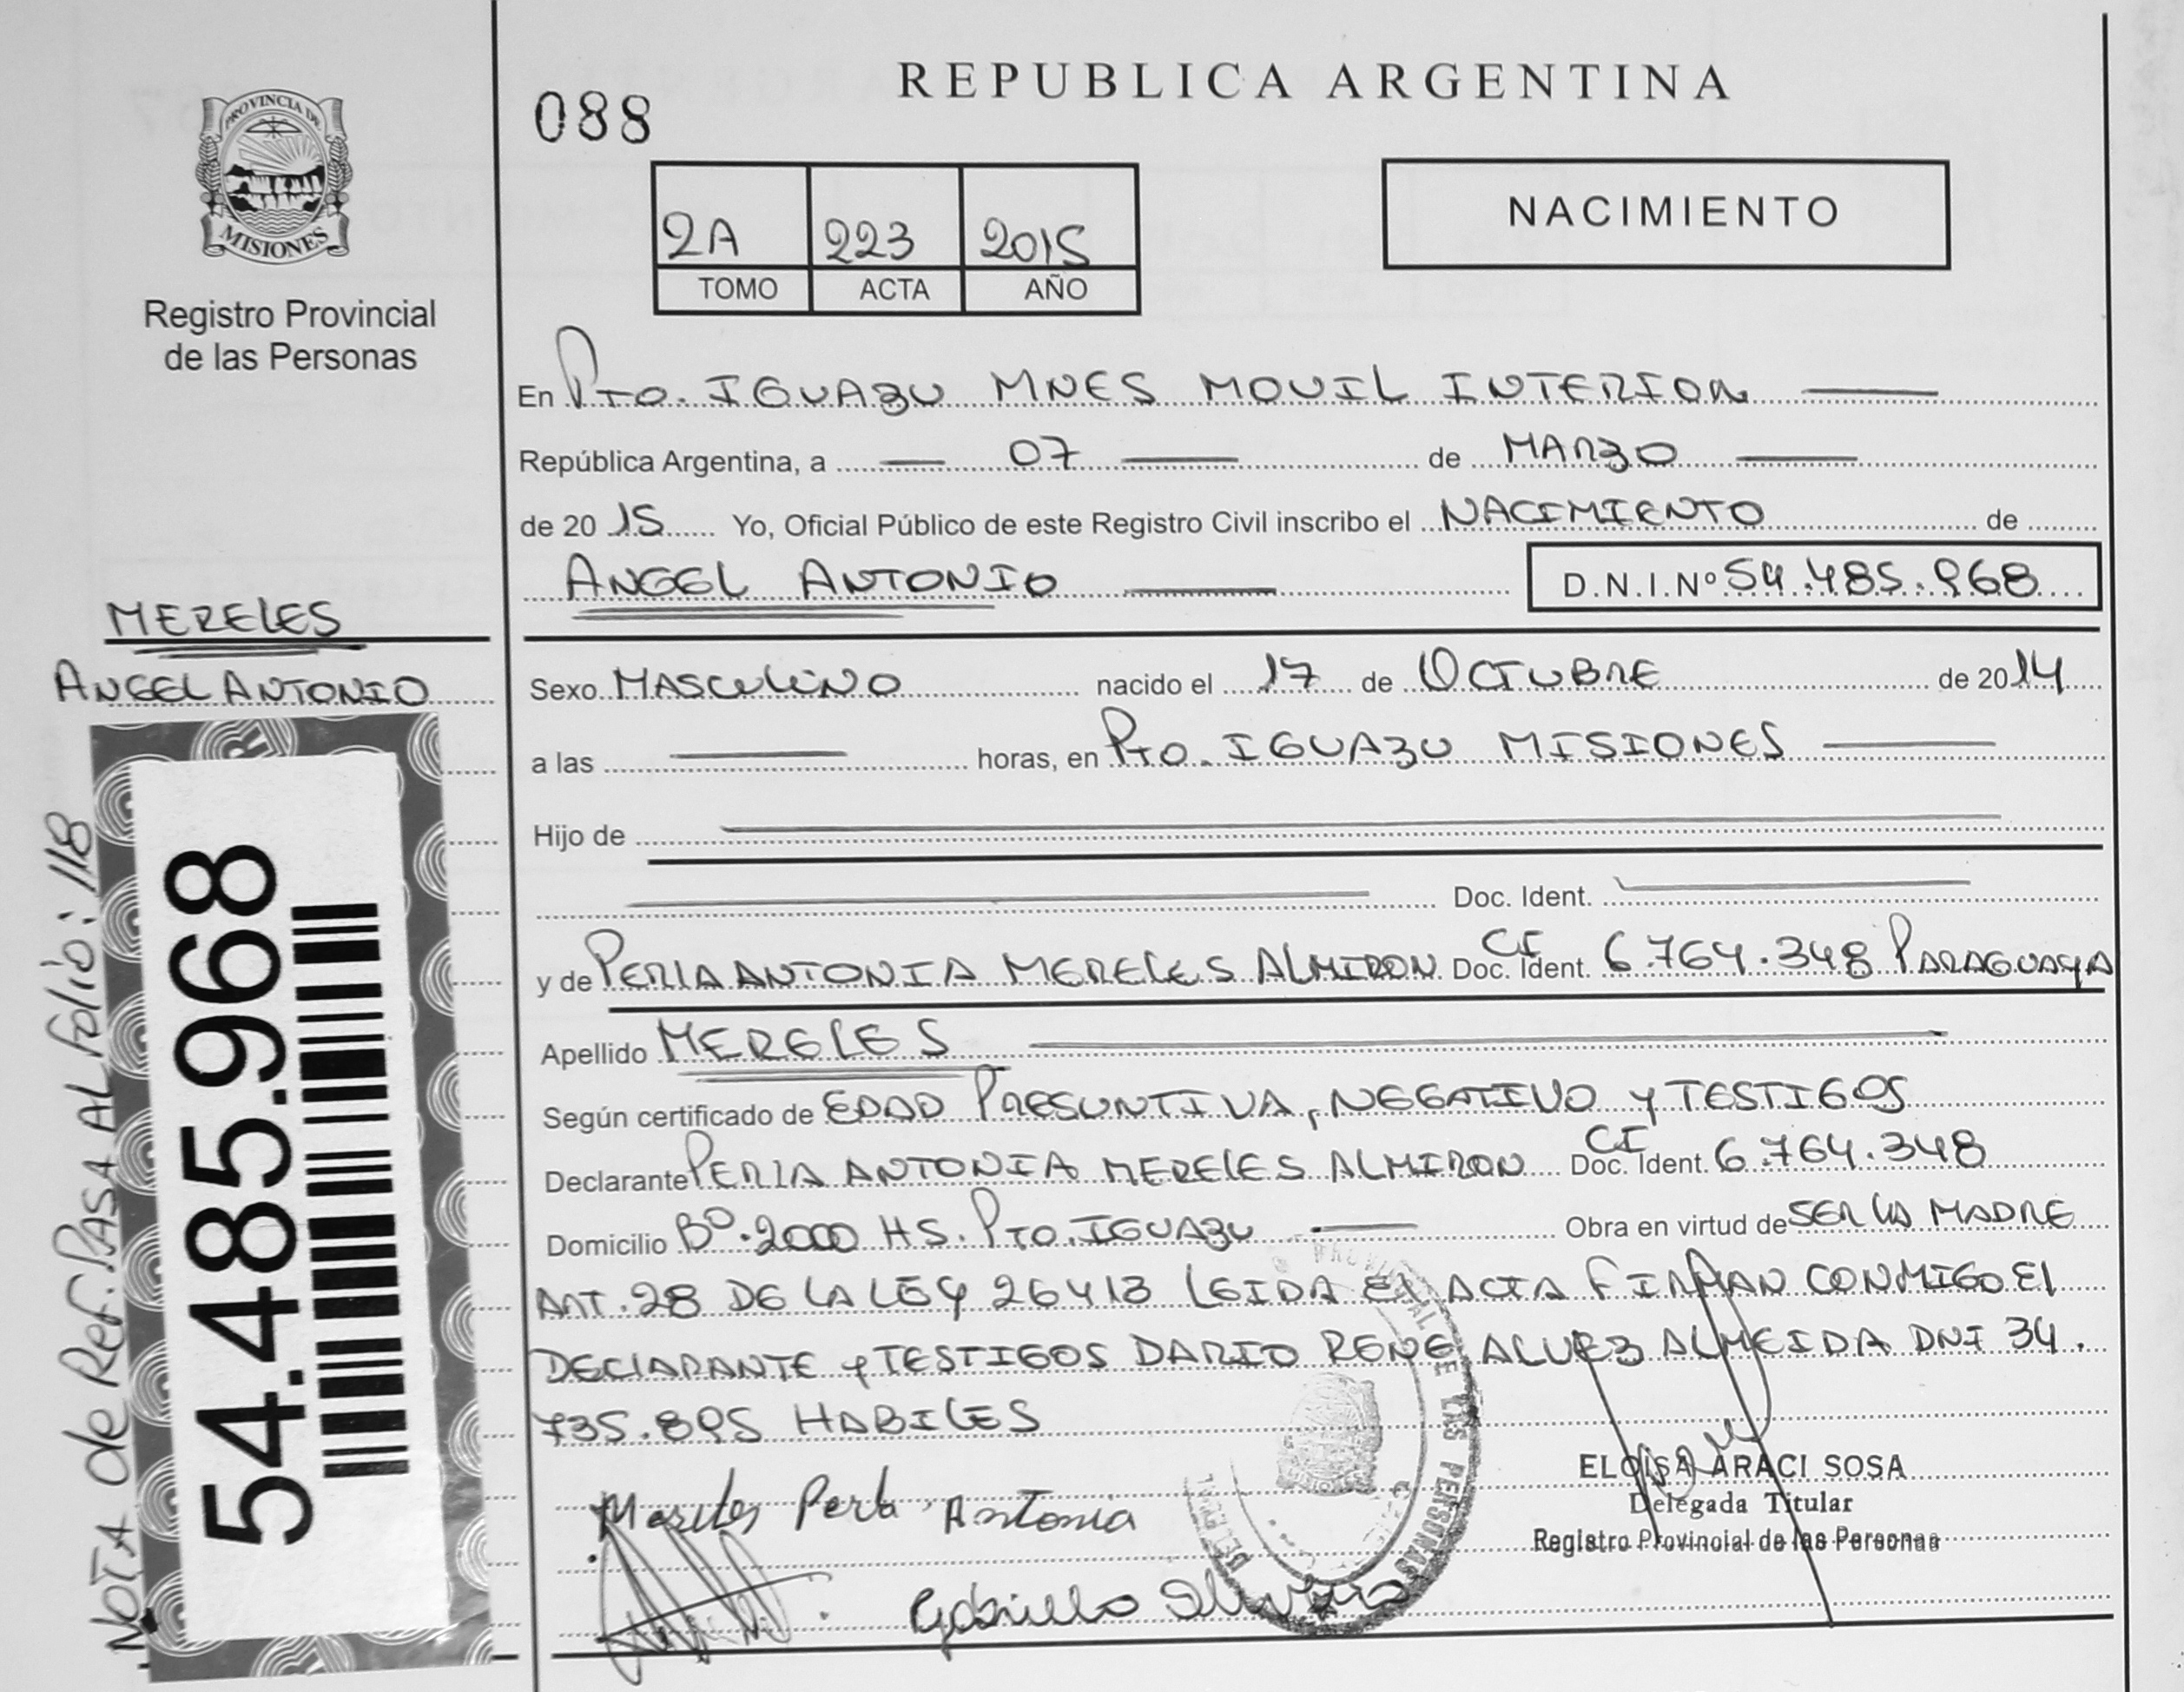 REPUBLICA ARGENTINA
088
PROVINCIA DE
MISIONES
Registro Provincial
de las Personas
2A 223 2015
TOMO ACTA AÑO
NACIMIENTO
En Pto. IGUAZU MNES MOVIL INTERIOR
República Argentina, a 07 de MARZO
de 2015 Yo, Oficial Público de este Registro Civil inscribo el NACIMIENTO de
ANGEL ANTONIO D.N.I.Nº 54.485.968
MERELES
ANGEL ANTONIO
Sexo MASCULINO nacido el 17 de OCTUBRE de 2014
a las horas, en Pto. IGUAZU MISIONES
Hijo de
Doc. Ident.
y de PERLA ANTONIA MERELES ALMIRON Doc. Ident. CI 6.764.348 PARAGUAYA
Apellido MERELES
Según certificado de EDAD PRESUNTIVA, NEGATIVO y TESTIGOS
Declarante PERLA ANTONIA MERELES ALMIRON Doc. Ident. CI 6.764.348
Domicilio Bº. 2000 HS. Pto. IGUAZU Obra en virtud de SER LA MADRE
ART. 28 DE LA LEY 26413 LEIDA El ACTA FIRMAN CONMIGO El
DECLARANTE y TESTIGOS DARIO RENE ALVEZ ALMEIDA DNI 34.
735.895 HABILES
Mereles Perla Antonia
ELOISA ARACI SOSA
Delegada Titular
Registro Provincial de las Personas
54.485.968
NOTA de Ref. PASA AL Folio: 118